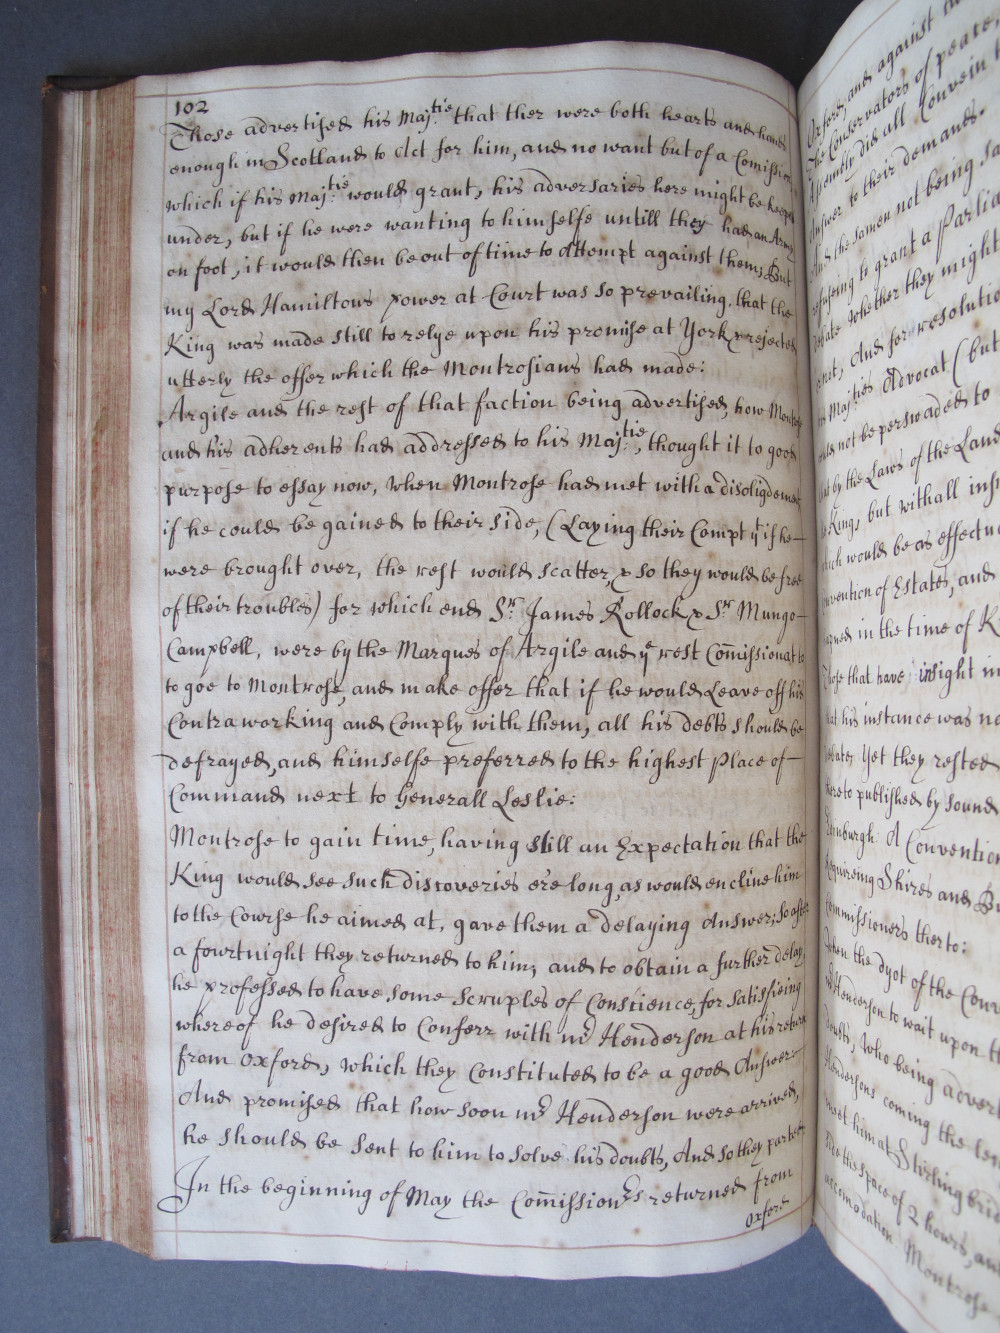 102
Those advertised his Maj:tie that ther were both hearts and hands
enough in Scotland to Act for him, and no want but of a Comission
which if his Maj:tie would grant, his adversaries here might be keept
under, but if he were wanting to himselfe untill they had an Army
on foot, it would then be out of time to Attempt against them; But
my Lord Hamiltons power at Court was so prevailing, that the
King was made still to relye upon his promise at York & rejected
utterly the offer which the Montrosians had made:
Argile and the rest of that faction being advertised, how Montrose
and his adherents had addressed to his Maj:tie, thought it to good
purpose to essay now, when Montrose had met with a disoligdement
if he could be gained to their side, (Laying their Compt yt if he
were brought over, the rest would scatter, & so they would be free
of their troubles) for which end Sr. James Rollock & Sr. Mungo
Campbell, were by the Marques of Argile and ye rest Com̄issionat to
to goe to Montrose, and make offer that if he would Leave off his
Contraworking and Comply with them, all his debts should be
defrayed, and himselfe preferred to the highest place of
Command next to Generall Leslie:
Montrose to gain time, having still an Expectation that the
King would see such discoveries e're long, as would encline him
to the Course he aimed at, gave them a delaying Answer; So after
a fourtnight they returned to him, and to obtain a further delay,
he professed to have some scruples of Conscience, for satisfieing
whereof he desired to Conferr with mr Henderson at his return
from Oxford, which they Constituted to be a good Answer:
And promised that how soon mr Henderson were arrived,
he should be sent to him to solve his doubts, And so they parted
In the beginning of May the Com̄issionrs returned from
Oxford
Oxford, and against
The Conservators of peace,
Assembly did all Convein
Answer to their demands.
And the samen not being
refusing to grant a Parlia
debate whether they might
And for resolutio
Maj:ties Advocat (but
not be perswaded to
by the Laws of the Land
Kings but withall
which would be as effectu
Convention of Estates, and
in the time of K
Those that have insight in
that his instance was no
Yet they rested
to published by sound
Edinburgh A Convention
Requireing Shires and Bu
Commissioners therto:
When the dyot of the Conv
Henderson to wait upon
doubts, Who being advert
Hendersons coming the
meet him at Stirling bridg
the space of 2 hours, and
accomodation Montrose